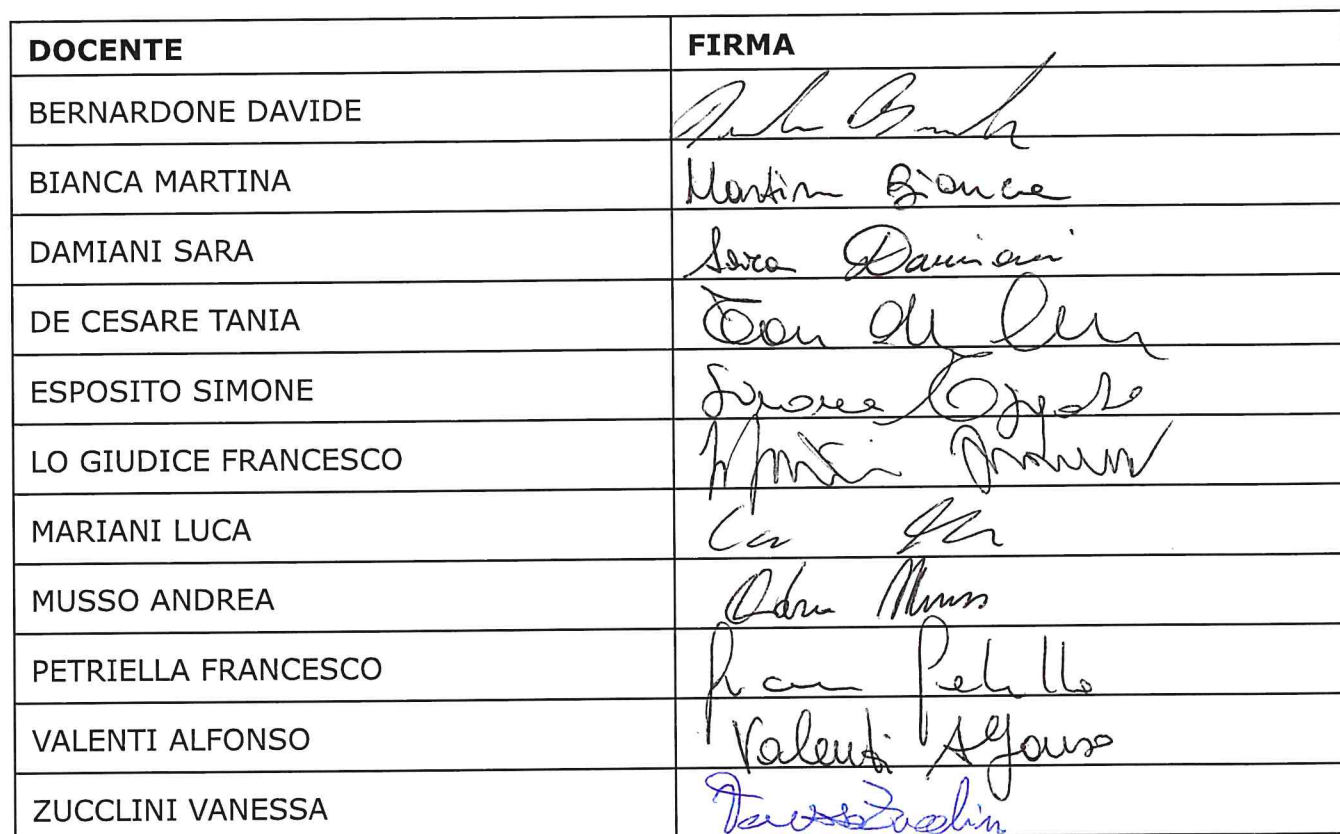 DOCENTE FIRMA
BERNARDONE DAVIDE
BIANCA MARTINA Martina Bianca
DAMIANI SARA Sara Damiani
DE CESARE TANIA
ESPOSITO SIMONE Simone Esposito
LO GIUDICE FRANCESCO
MARIANI LUCA
MUSSO ANDREA
PETRIELLA FRANCESCO
VALENTI ALFONSO Valenti Alfonso
ZUCCLINI VANESSA Vanessa Zucclini